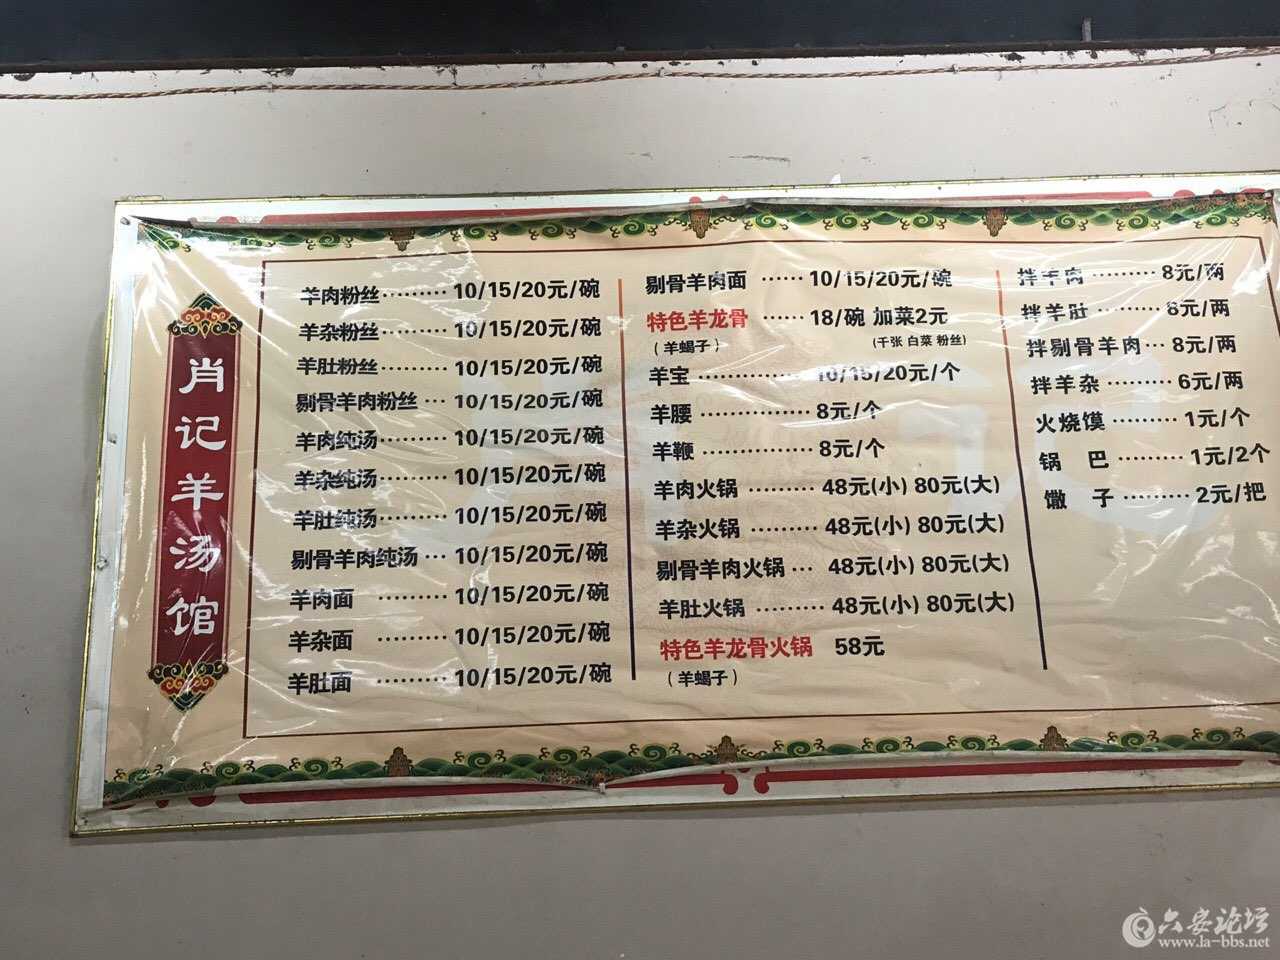 肖记羊汤馆
羊肉粉丝········· 10/15/20元/碗
羊杂粉丝········· 10/15/20元/碗
羊肚粉丝········· 10/15/20元/碗
剔骨羊肉粉丝 ··· 10/15/20元/碗
羊肉纯汤········· 10/15/20元/碗
羊杂纯汤········· 10/15/20元/碗
羊肚纯汤········· 10/15/20元/碗
剔骨羊肉纯汤 ··· 10/15/20元/碗
羊肉面 ········· 10/15/20元/碗
羊杂面 ········· 10/15/20元/碗
羊肚面 ········· 10/15/20元/碗
剔骨羊肉面 ······ 10/15/20元/碗
特色羊龙骨 ······ 18/碗 加菜2元
（羊蝎子） (千张 白菜 粉丝)
羊宝 ··············· 10/15/20元/个
羊腰 ··············· 8元/个
羊鞭 ··············· 8元/个
羊肉火锅 ········· 48元(小) 80元(大)
羊杂火锅 ········· 48元(小) 80元(大)
剔骨羊肉火锅 ··· 48元(小) 80元(大)
羊肚火锅 ········· 48元(小) 80元(大)
特色羊龙骨火锅 58元
（羊蝎子）
拌羊肉 ········· 8元/两
拌羊肚 ········· 8元/两
拌剔骨羊肉 ··· 8元/两
拌羊杂 ········· 6元/两
火烧馍 ········· 1元/个
锅 巴 ········· 1元/2个
馓 子 ········· 2元/把
六安论坛
www.la-bbs.net